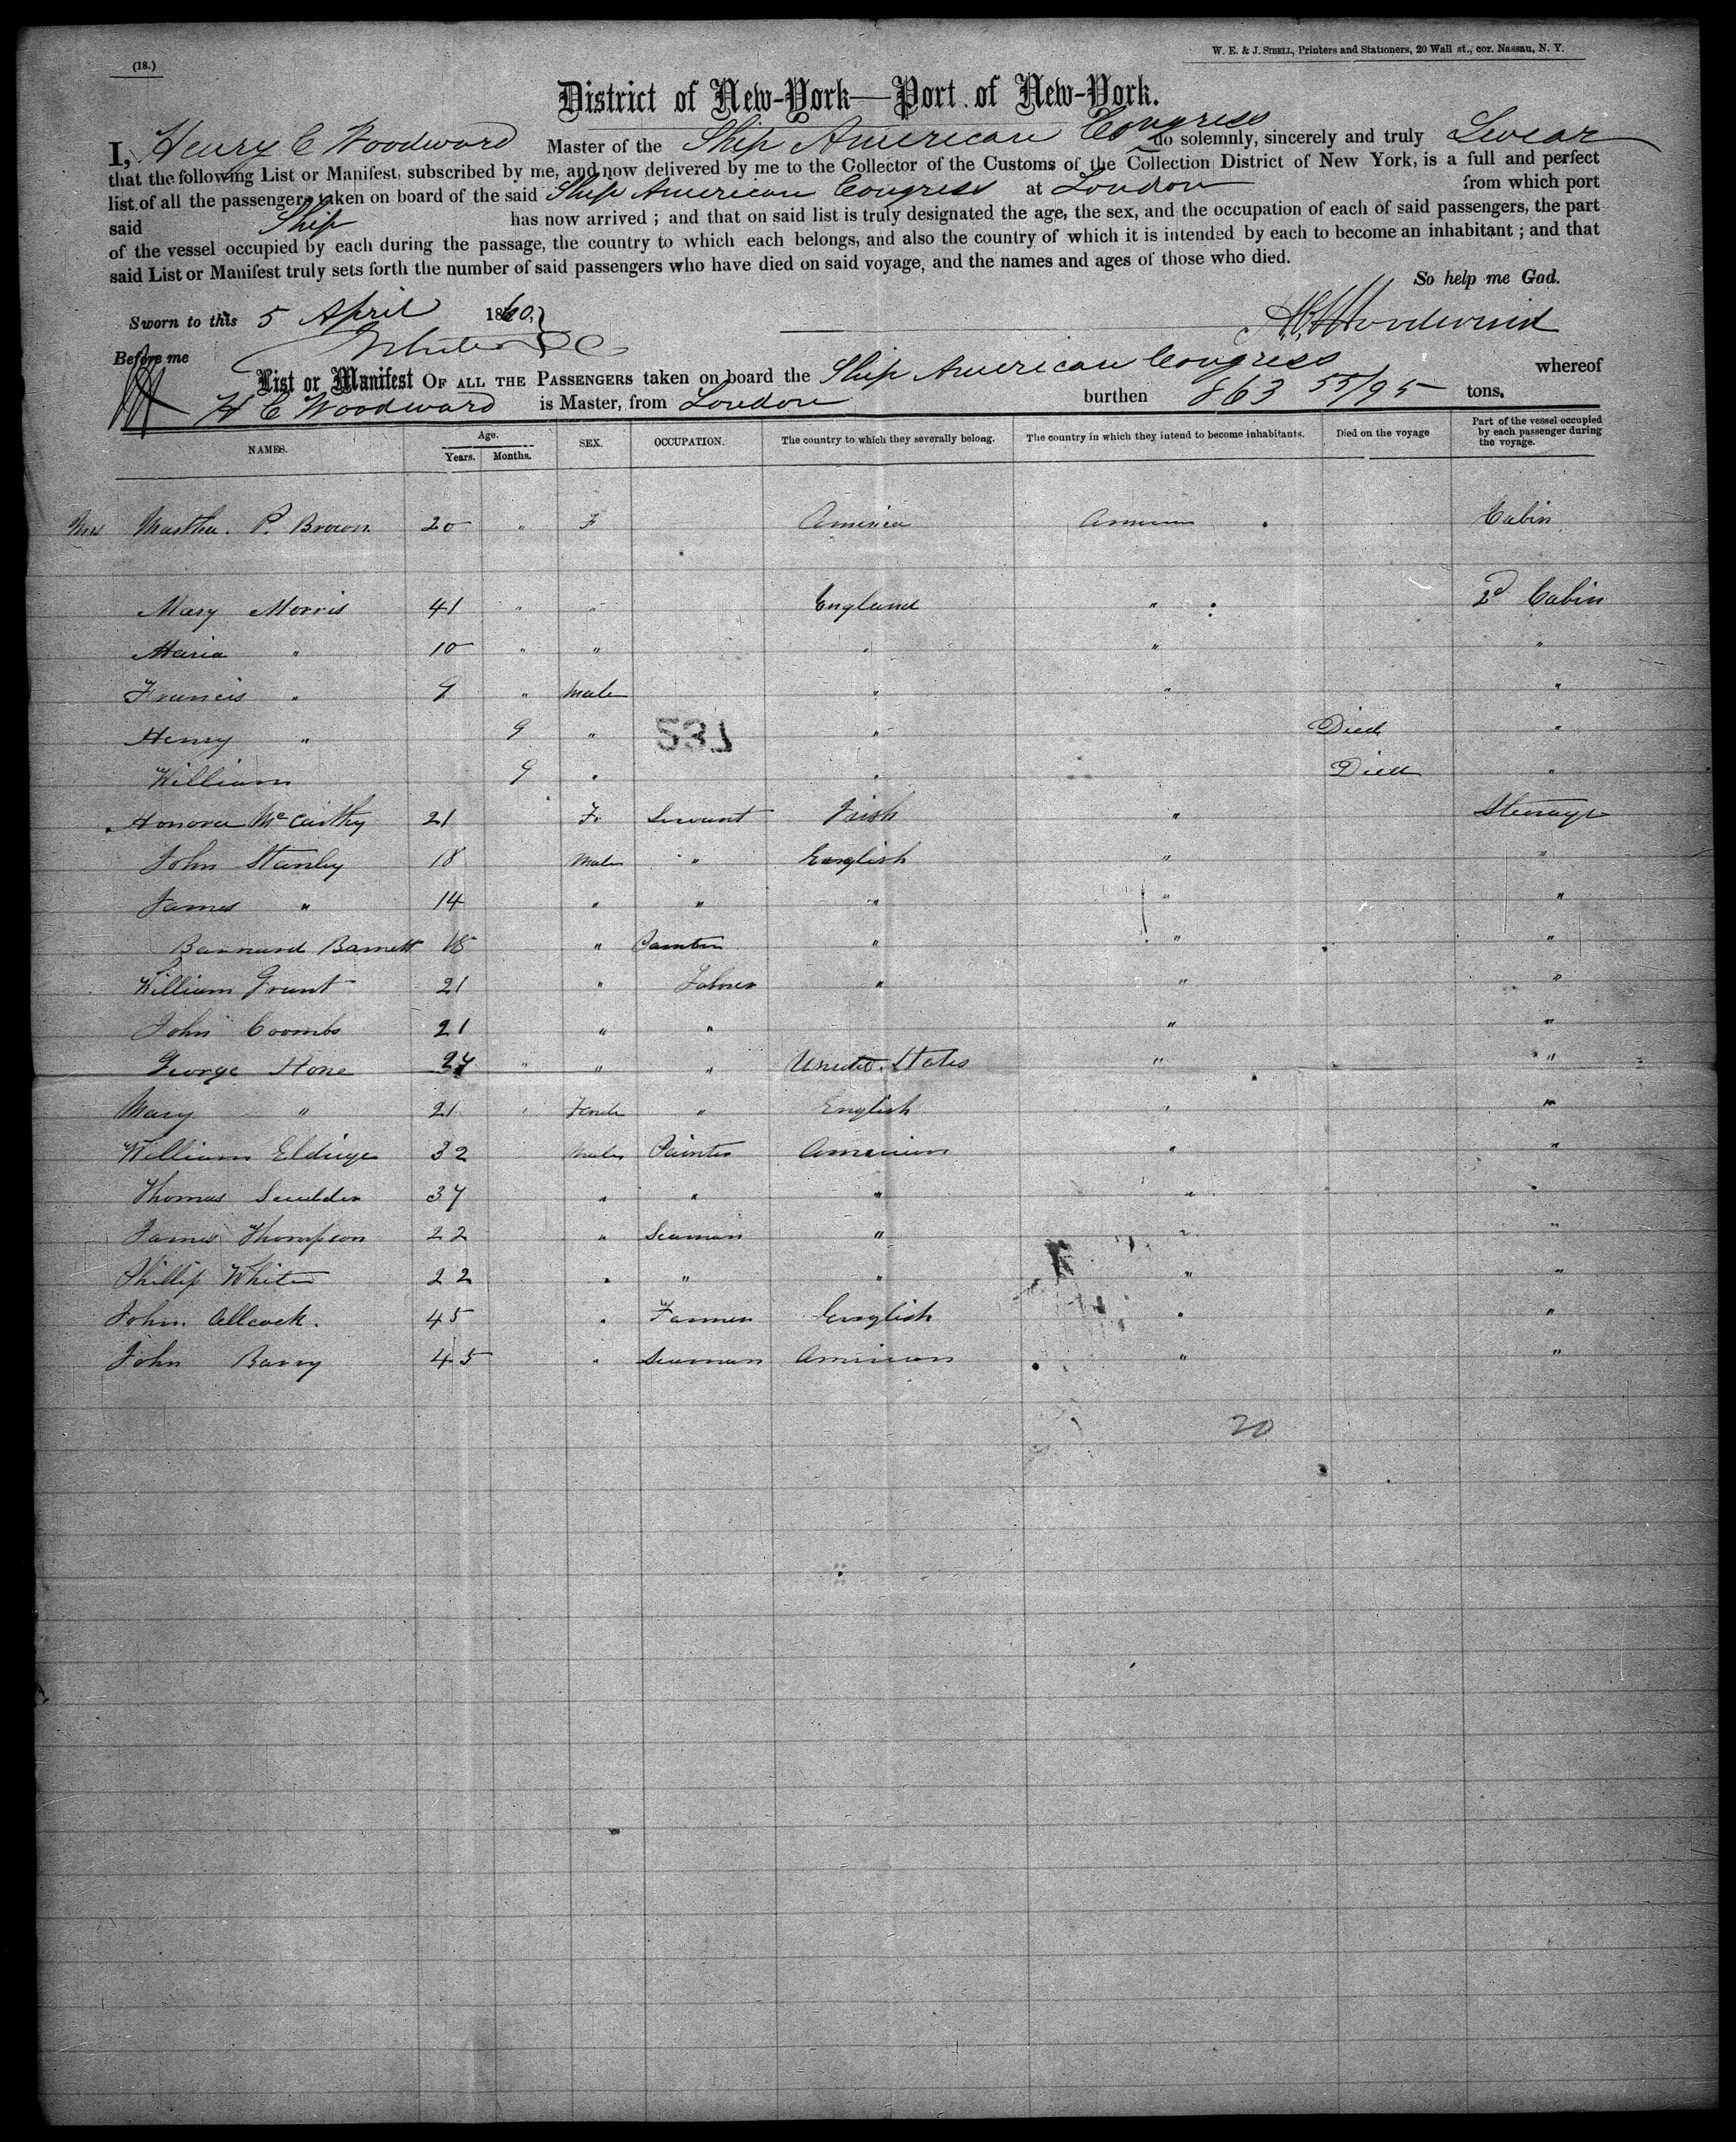 (18.)
W. E. & J. SIBELL, Printers and Stationers, 20 Wall st., cor. Nassau, N. Y.
District of New-York—Port of New-York.
I, Henry C Woodward Master of the Ship American Congress do solemnly, sincerely and truly Swear
that the following List or Manifest, subscribed by me, and now delivered by me to the Collector of the Customs of the Collection District of New York, is a full and perfect
list of all the passengers taken on board of the said Ship American Congress at London from which port
said Ship has now arrived ; and that on said list is truly designated the age, the sex, and the occupation of each of said passengers, the part
of the vessel occupied by each during the passage, the country to which each belongs, and also the country of which it is intended by each to become an inhabitant ; and that
said List or Manifest truly sets forth the number of said passengers who have died on said voyage, and the names and ages of those who died.
So help me God.
Sworn to this 5 April 1860, H C Woodward
Before me
List or Manifest OF ALL THE PASSENGERS taken on board the Ship American Congress whereof
H C Woodward is Master, from London burthen 863 55/95 tons.
NAMES. Age. Years. Months. SEX. OCCUPATION. The country to which they severally belong. The country in which they intend to become inhabitants. Died on the voyage Part of the vessel occupied by each passenger during the voyage.
Mrs Martha. P. Brown 20 " F America America Cabin
Mary Morris 41 " " England " 2d Cabin
Maria " 10 " " " " "
Francis " 9 " Male " " "
Henry " 9 " " Died "
237
William 9 " " Died "
Honora McCarthy 21 F. Servant Irish " Steerage
John Stanley 18 Male " English " "
James " 14 " " " " "
Barnard Barnett 18 " " " "
William Grant 21 " Laborer " " "
John Coombs 21 " " " "
George Stone 27 " " " United States " "
Mary " 21 " Female " English " "
William Eldridge 32 Male Painter American " "
Thomas 37 " " " " "
James Thompson 22 " Seaman " " "
Phillip White 22 " " " " "
John Allcock. 45 " Farmer English " "
John Barry 45 " Seaman American " "
20